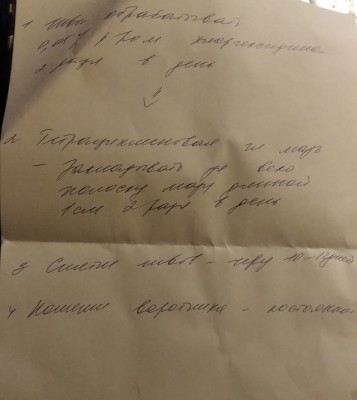 1 Швы обрабатывай
0,05% р-ром хлоргексидина
2 раза в день
⇓
2 Тетрациклиновая гл мазь
– Закладывать за веко
полоску мази длиной
1 см 2 раза в день
3 Снятие швов – через 10-12 дней
4 Ношение воротника – постоянно